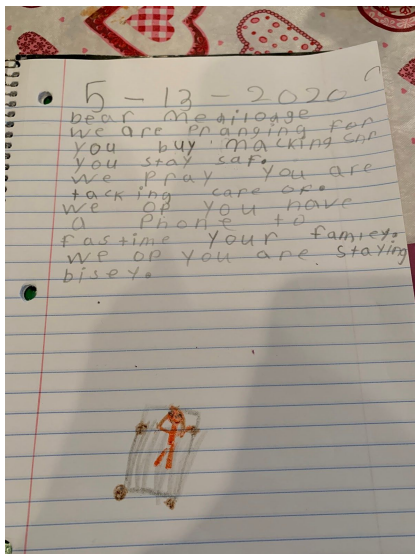 5-13-2020
Dear Meriloage
We are pranging for
you buy macking snr
you stay saf.
We Pray you are
tacking care of.
We op you have
a Phone to
fastime your famley.
We op you are staying
bisey.